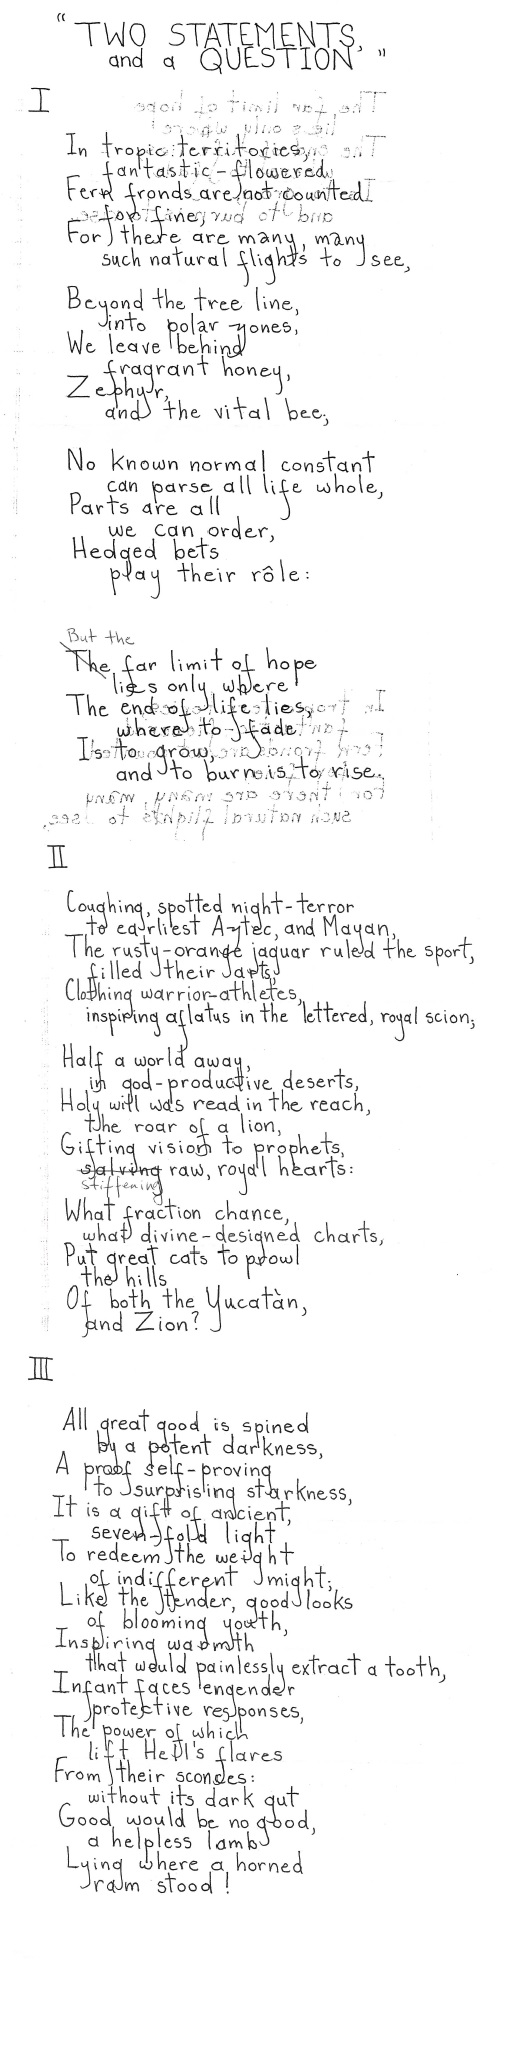 "TWO STATEMENTS,
and a QUESTION"
I
In tropic territories,
fantastic-flowered,
Fern fronds are not counted
for fine,
For there are many, many
such natural flights to see,
Beyond the tree line,
into polar zones,
We leave behind
fragrant honey,
Zephyr,
and the vital bee;
No known normal constant
can parse all life whole,
Parts are all
we can order,
Hedged bets
play their rôle:
But the
The far limit of hope
lies only where
The end of life lies,
where to fade
Is to grow,
and to burn is to rise.
II
Coughing, spotted night-terror
to earliest Aztec, and Mayan,
The rusty-orange jaguar ruled the sport,
filled their arts,
Clothing warrior-athletes,
inspiring aflatus in the lettered, royal scion;
Half a world away,
in god-productive deserts,
Holy will was read in the reach,
the roar of a lion,
Gifting vision to prophets,
salving raw, royal hearts:
stiffening
What fraction chance,
what divine-designed charts,
Put great cats to prowl
the hills
Of both the Yucatàn,
and Zion?
III
All great good is spined
by a potent darkness,
A proof self-proving
to surprising starkness,
It is a gift of ancient,
seven-fold light
To redeem the weight
of indifferent might;
Like the tender, good looks
of blooming youth,
Inspiring warmth
that would painlessly extract a tooth,
Infant faces engender
protective responses,
The power of which
lift Hell's flares
From their sconces:
without its dark gut
Good would be no good,
a helpless lamb
Lying where a horned
ram stood!